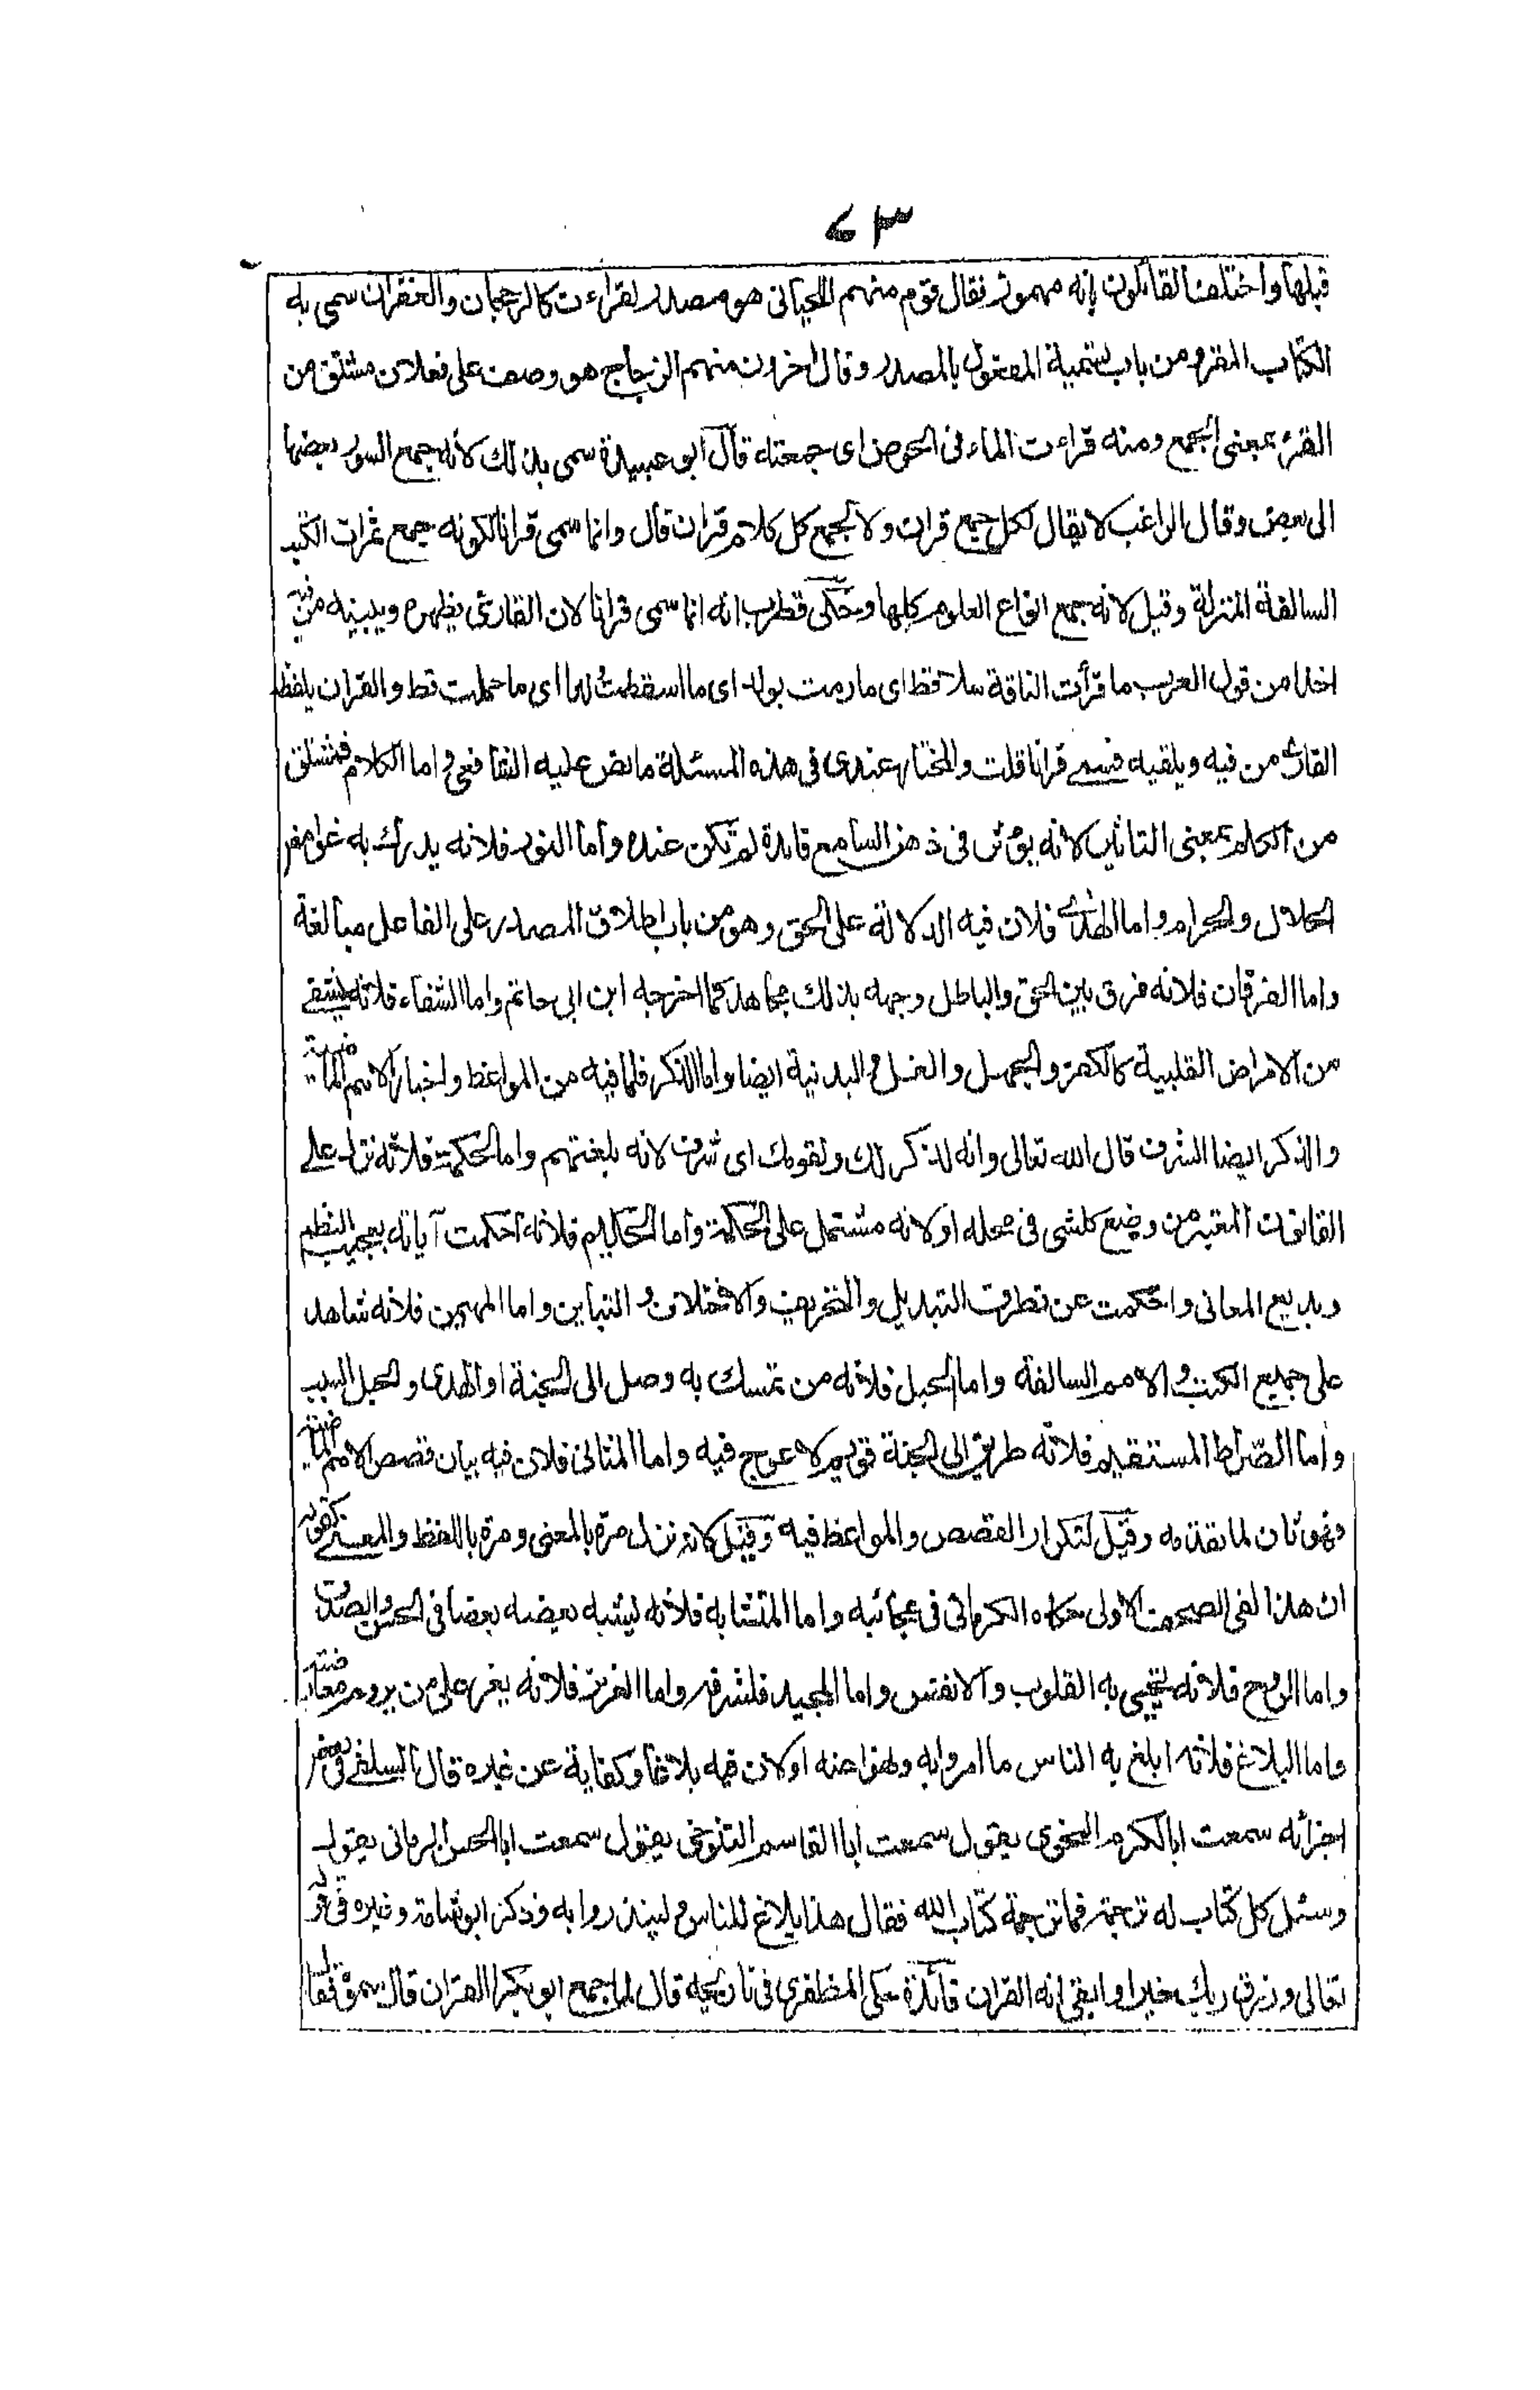 ٧٣
قبلها واختلف القائلون بانه مهموز فقال قوم منهم اللحياني هو مصدر لقراءت كالرجحان والغفران سمى به
الكتاب المقرو من باب تسمية المفعول بالمصدر وقال اخرون منهم الزجاج هو وصف على فعلان مشتق من
القرء بمعنى الجمع ومنه قراءت الماء فى الحوض اى جمعته قال ابو عبيدة سمى بذلك لانه جمع السور بعضها
الى بعض وقال الراغب لا يقال لكل جمع قران ولا لجمع كل كلام قران قال وانما سمى قرانا لكونه جمع ثمرات الكتب
السالفة المنزلة وقيل لانه جمع انواع العلوم كلها وحكى قطرب انه انما سمى قرانا لان القارئ يظهره ويبينه من فيه
اخذا من قول العرب ما قرأت الناقة سلا قط اى ما رمت بولد اى ما اسقطت ولدا اى ما حملت قط والقران يلفظه
القارئ من فيه ويلقيه فسمى قرانا قلت والمختار عندى فى هذه المسئلة ما نص عليه الشافعى واما الكلام فمشتق
من الكلم بمعنى التاثير لانه يؤثر فى ذهن السامع فايدة لم تكن عنده واما النور فلانه يدرك به غوامض
الحلال والحرام واما الهدى فلان فيه الدلالة على الحق وهو من باب اطلاق المصدر على الفاعل مبالغة
واما الفرقان فلانه فرق بين الحق والباطل وجهه بذلك مجاهد كما اخرجه ابن ابى حاتم واما الشفاء فلانه يشفى
من الامراض القلبية كالكفر والجهل والغل والبدنية ايضا واما الذكر فلما فيه من المواعظ واخبار الامم الماضية
والذكر ايضا الشرف قال الله تعالى وانه لذكر لك ولقومك اى شرف لانه بلغتهم واما الحكمة فلانه نزل على
القانون المعتبر من وضع كلشى فى محله او لانه مشتمل على الحكمة واما الحكيم فلانه احكمت آياته بعجيب النظم
وبديع المعانى واحكمت عن تطرق التبديل والتحريف والاختلاف والتباين واما المهيمن فلانه شاهد
على جميع الكتب والامم السالفة واما الحبل فلانه من تمسك به وصل الى الجنة او الهدى والحبل السبب
واما الصراط المستقيم فلانه طريق الى الجنة قويم لا عوج فيه واما المثانى فلان فيه بيان قصص الامم الماضية
فهو ثان لما تقدمه وقيل لتكرار القصص والمواعظ فيه وقيل لانه نزل مرة بالمعنى ومرة باللفظ والمعنى كقوله
ان هذا لفى الصحف الاولى حكاه الكرمانى فى عجائبه واما المتشابه فلانه يشبه بعضه بعضا فى الحسن والصدق
واما الروح فلانه تحيى به القلوب والانفس واما المجيد فلشرفه واما العزيز فلانه يعز على من يروم معارضته
واما البلاغ فلانه ابلغ به الناس ما امروا به ونهوا عنه او لان فيه بلاغا وكفاية عن غيره قال السلفى فى بعض
اجزائه سمعت ابا الكرم النحوى يقول سمعت ابا القاسم التنوخى يقول سمعت ابا الحسن الرمانى يقول
وسئل كل كتاب له ترجمة فما ترجمة كتاب الله فقال هذا بلاغ للناس ولينذروا به وذكر ابو شامة وغيره فى قوله
تعالى ورزق ربك خير وابقى انه القران فائدة حكى المظفرى فى تاريخه قال لما جمع ابو بكر القران قال سموه فقال